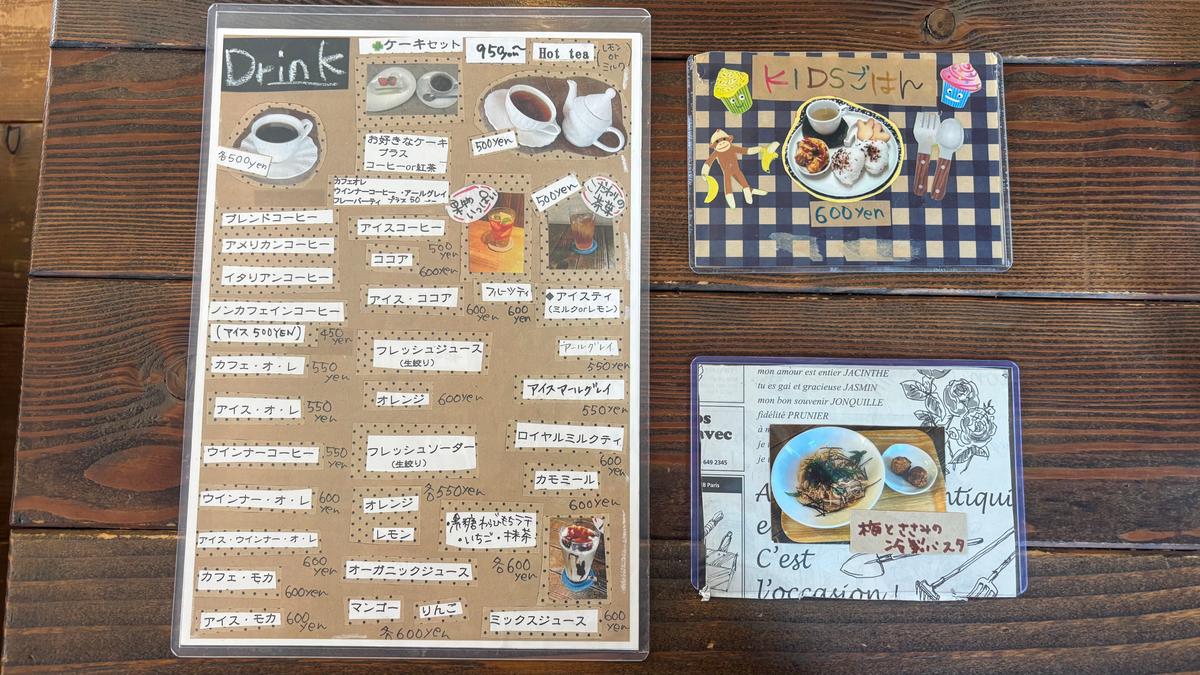 Drink
ケーキセット
950yen
Hot tea
レモン
or
ミルク
各500yen
お好きなケーキ
プラス
コーヒーor紅茶
500yen
カフェオレ
ウインナーコーヒー・アールグレイ
フレーバーティ プラス50
果物
いっぱい
500yen
こだわりの
茶葉
ブレンドコーヒー
アメリカンコーヒー
イタリアンコーヒー
ノンカフェインコーヒー
(アイス 500YEN)
450yen
カフェ・オ・レ
550yen
アイス・オ・レ
550yen
ウインナーコーヒー
550yen
ウインナー・オ・レ
600yen
アイス・ウインナー・オ・レ
600yen
カフェ・モカ
600yen
アイス・モカ
600yen
アイスコーヒー
500yen
ココア
600yen
アイス・ココア
600yen
フレッシュジュース
(生絞り)
オレンジ
600yen
フレッシュソーダー
(生絞り)
各550yen
オレンジ
レモン
オーガニックジュース
マンゴー
りんご
各600yen
フルーツティ
600yen
◆アイスティ
(ミルクorレモン)
アールグレイ
550yen
アイスアールグレイ
550yen
ロイヤルミルクティ
600yen
カモミール
600yen
・黒糖わらびもちラテ
・いちご・抹茶
各600yen
ミックスジュース
600yen
KIDSごはん
600yen
mon amour est entier JACINTHE
tu es gai et gracieuse JASMIN
mon bon souvenir JONQUILLE
fidélité PRUNIER
avec
649 2345
Paris
梅とささみの
冷製パスタ
C'est
l'occasion!